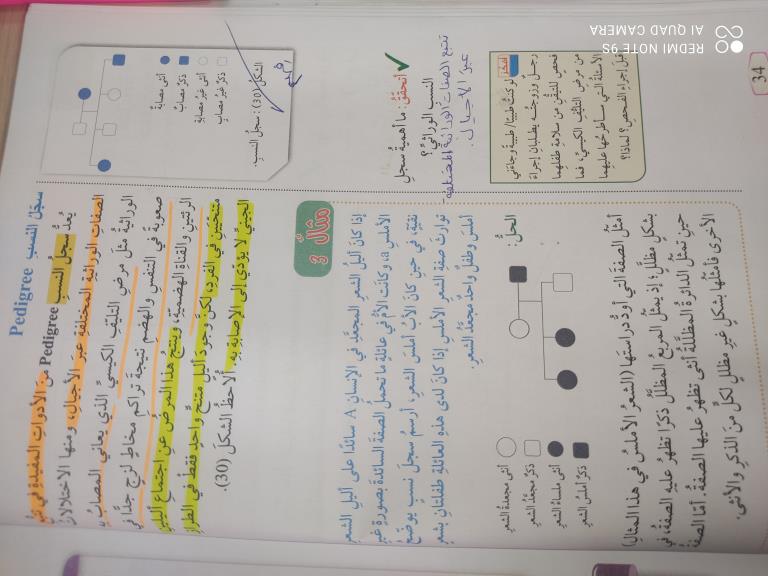 سجل النسب Pedigree
يُعدُّ سجلُّ النسبِ Pedigree منَ الأدواتِ المفيدةِ في تتبُّعِ
الصفاتِ الوراثيةِ المختلفةِ عبرَ الأجيالِ، ومنها الاختلالاتُ
الوراثيةُ مثلُ مرضِ التليفِ الكيسيِّ الذي يعاني المصابُ بهِ
صعوبةً في التنفسِ والهضمِ نتيجةَ تراكمِ مخاطٍ لزجٍ جدًّا في
الرئتينِ والقناةِ الهضميةِ، وينتجُ هذا المرضُ عنِ اجتماعِ أليلينِ
متنحيينِ في الفردِ، لكنَّ وجودَ أليلٍ متنحٍّ واحدٍ فقطْ في الطرازِ
الجينيِّ لا يؤدي إلى الإصابةِ بهِ. ألاحظُ الشكلَ (30).
مثال 3
إذا كانَ أليلُ الشعرِ المجعَّدِ في الإنسانِ A سائدًا على أليلِ الشعرِ
الأملسِ a، وكانتِ الأمُّ في عائلةٍ ما تحملُ الصفةَ السائدةَ بصورةٍ غيرِ
نقيةٍ، في حينِ كانَ الأبُ أملسَ الشعرِ، أرسمُ سجلَّ نسبٍ يوضِّحُ
توارثَ صفةِ الشعرِ الأملسِ إذا كانَ لدى هذهِ العائلةِ طفلتانِ بشعرٍ
أملسَ وطفلٌ واحدٌ مجعَّدُ الشعرِ.
الحلُّ:
أنثى مجعدةُ الشعرِ
ذكرٌ مجعَّدُ الشعرِ
أنثى ملساءُ الشعرِ
ذكرٌ أملسُ الشعرِ
أمثلُ الصفةَ التي أودُّ دراستَها (الشعرُ الأملسُ في هذا المثالِ)
بشكلٍ مظللٍ؛ إذ يمثلُ المربعُ المظللُ ذكرًا تظهرُ عليهِ الصفةُ، في
حينِ تمثلُ الدائرةُ المظللةُ أنثى تظهرُ عليها الصفةُ. أمّا الصفةُ
الأخرى فأمثلُها بشكلٍ غيرِ مظللٍ لكلٍّ منَ الذكرِ والأنثى.
ذكرٌ غيرُ مصابٍ
أنثى غيرُ مصابةٍ
ذكرٌ مصابٌ
أنثى مصابةٌ
الشكلُ (30): سجلُّ النسبِ.
أتحققُ: ما أهميةُ سجلِّ
النسبِ الوراثيِّ؟
تتبع الصفات الوراثية المختلفة
عبر الأجيال.
أفكر لو كنتُ طبيبًا/ طبيبةً وجاءَني
رجلٌ وزوجتُهُ يطلبانِ إجراءَ
فحصٍ للتيقُّنِ منْ سلامةِ طفلِهما
منْ مرضِ التليفِ الكيسيِّ، فما
الأسئلةُ التي سأطرحُها عليهِما
قبلَ إجراءِ الفحصِ؟ لماذا؟
34
REDMI NOTE 9S
AI QUAD CAMERA